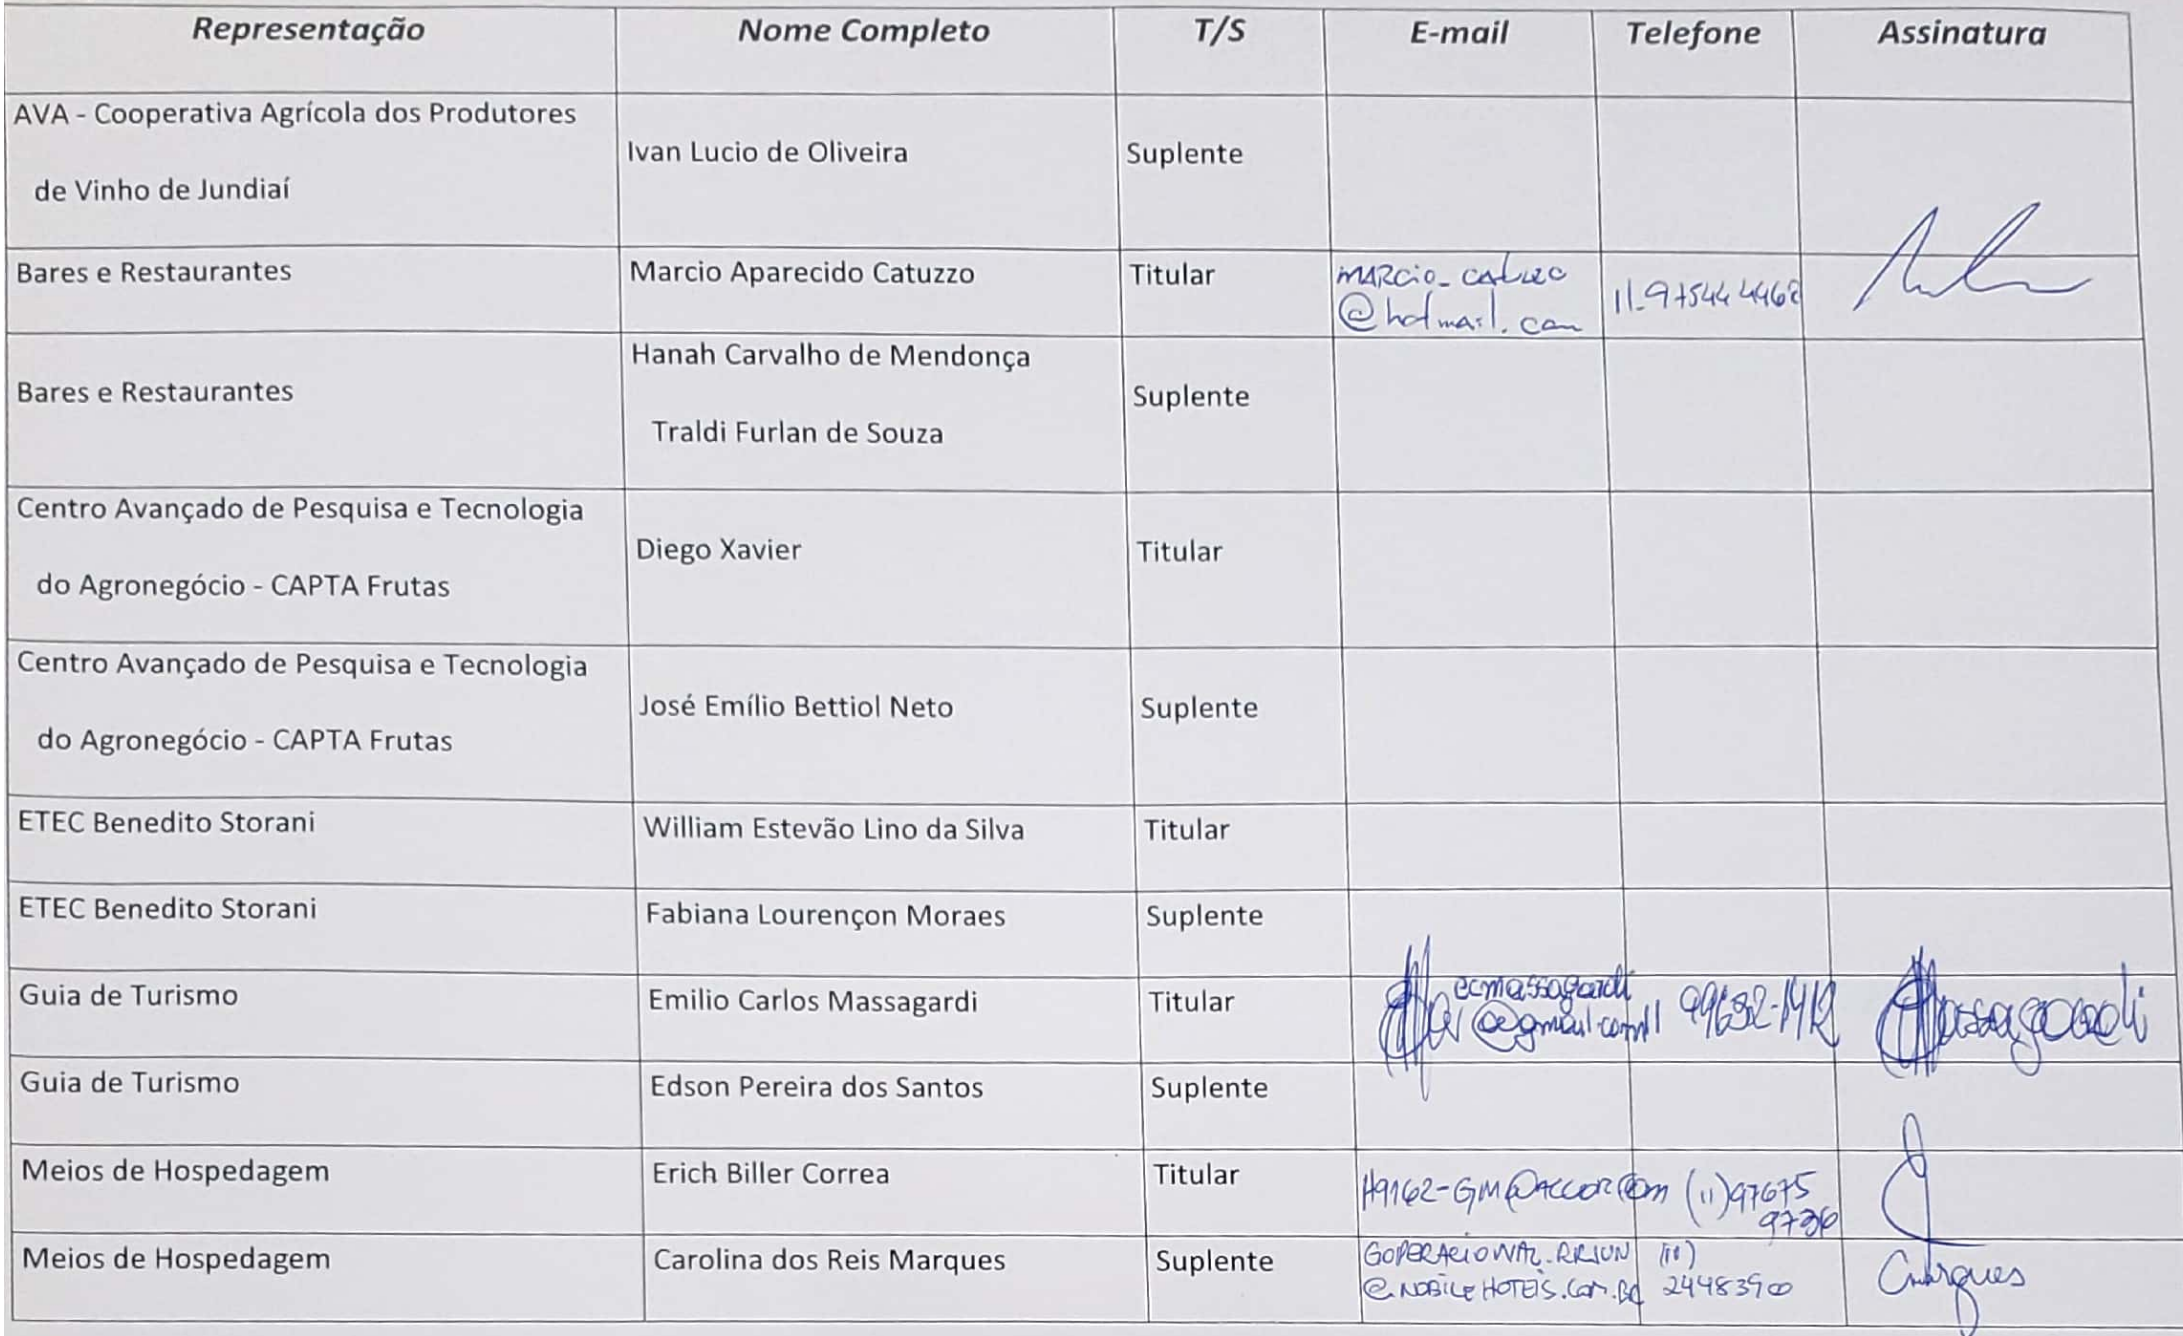 Representação Nome Completo T/S E-mail Telefone Assinatura
AVA - Cooperativa Agrícola dos Produtores
de Vinho de Jundiaí
Ivan Lucio de Oliveira Suplente
Bares e Restaurantes Marcio Aparecido Catuzzo Titular
@hotmail.com
Bares e Restaurantes
Hanah Carvalho de Mendonça
Traldi Furlan de Souza
Suplente
Centro Avançado de Pesquisa e Tecnologia
do Agronegócio - CAPTA Frutas
Diego Xavier Titular
Centro Avançado de Pesquisa e Tecnologia
do Agronegócio - CAPTA Frutas
José Emílio Bettiol Neto Suplente
ETEC Benedito Storani William Estevão Lino da Silva Titular
ETEC Benedito Storani Fabiana Lourençon Moraes Suplente
Guia de Turismo Emilio Carlos Massagardi Titular
ecmassagardi
Massagardi
Guia de Turismo Edson Pereira dos Santos Suplente
Meios de Hospedagem Erich Biller Correa Titular
H9162-GM@ACCOR.COM (11)97675
9736
Meios de Hospedagem Carolina dos Reis Marques Suplente
(11)
@NOBILEHOTEIS.COM.BR 24483900
CMarques